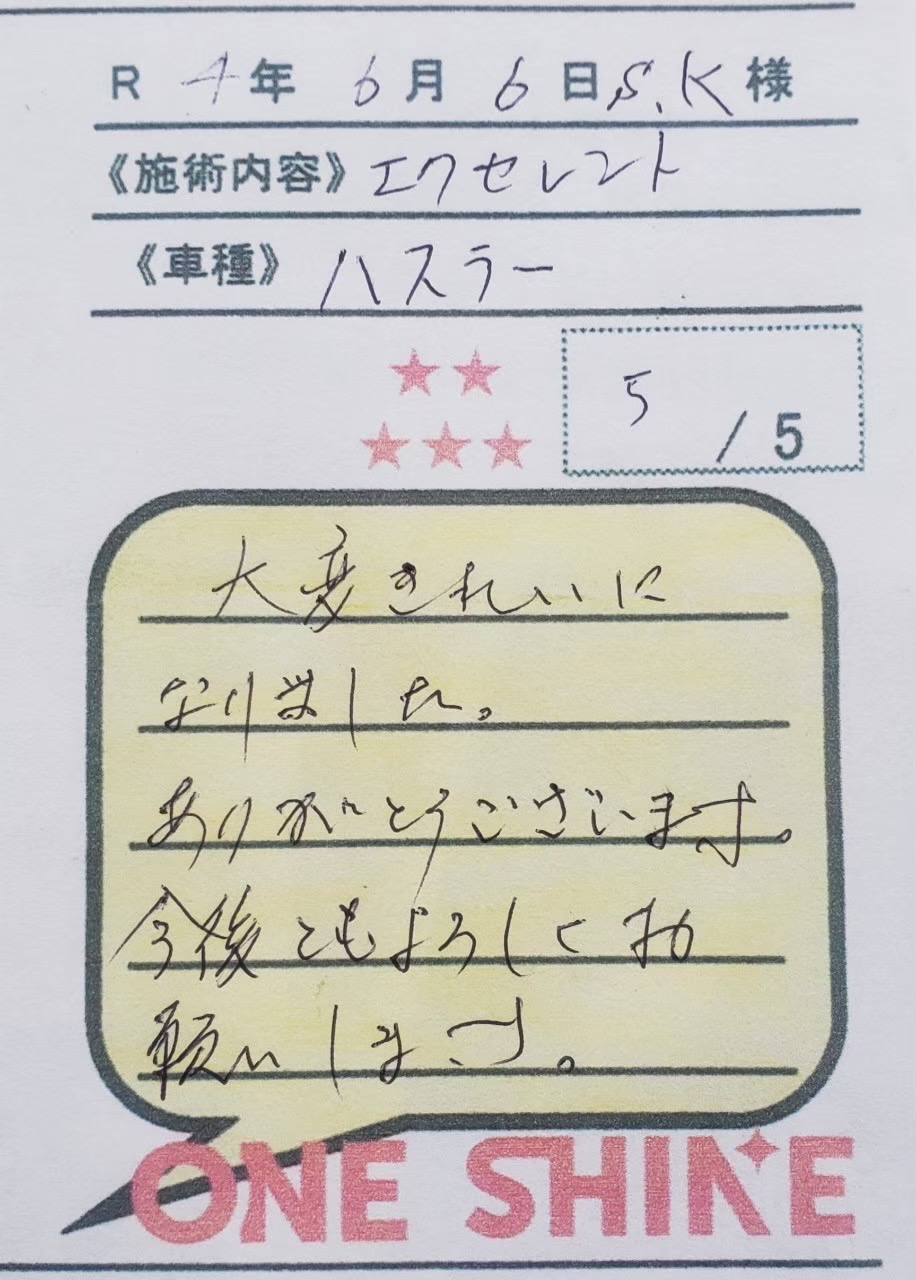 R 4年 6月 6日 S.K 様
《施術内容》エクセレント
《車種》ハスラー
5 / 5
大変きれいに
なりました。
ありがとうございます。
今後ともよろしくお
願いします。
ONE SHINE